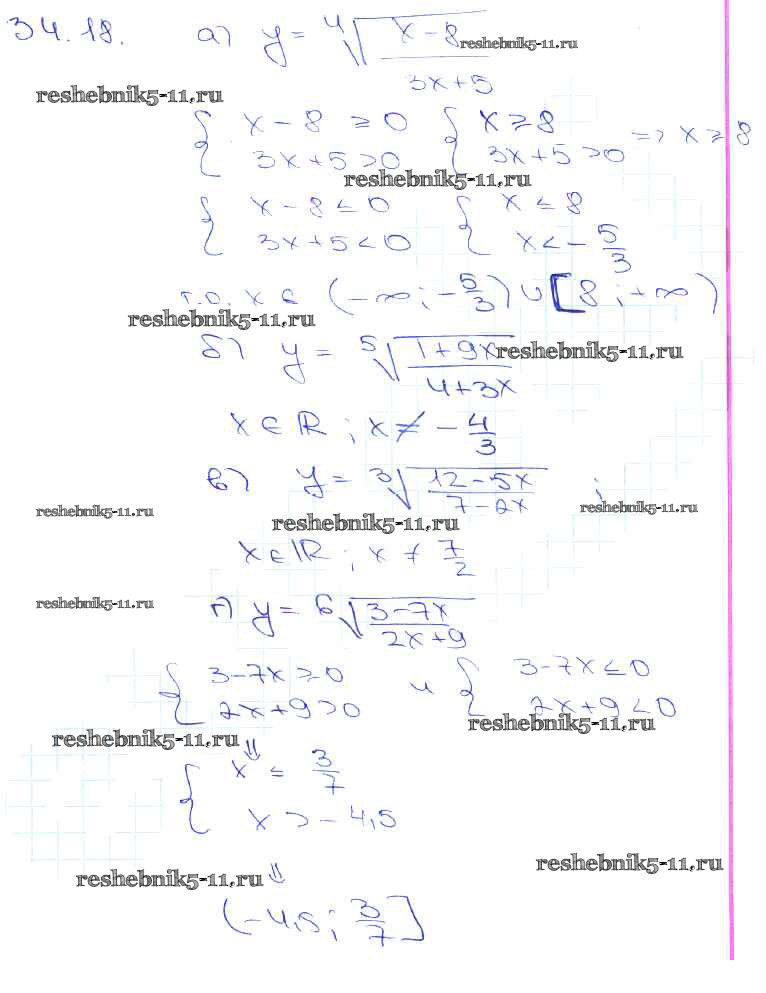 34.18. а) y = ⁴√((x-8)/(3x+5))
reshebnik5-11.ru
reshebnik5-11.ru
{ x-8 ≥ 0 { x ≥ 8
{ 3x+5 > 0 { 3x+5 > 0 => x ≥ 8
reshebnik5-11.ru
{ x-8 ≤ 0 { x ≤ 8
{ 3x+5 < 0 { x < -5/3
т.о. x ∈ (-∞; -5/3) ∪ [8; +∞)
reshebnik5-11.ru
б) y = ⁵√((1+9x)/(4+3x))
reshebnik5-11.ru
x ∈ R; x ≠ -4/3
в) y = ³√((12-5x)/(7-2x)) ;
reshebnik5-11.ru
reshebnik5-11.ru
reshebnik5-11.ru
x ∈ R; x ≠ 7/2
reshebnik5-11.ru
г) y = ⁶√((3-7x)/(2x+9))
{ 3-7x ≥ 0 и { 3-7x ≤ 0
{ 2x+9 > 0 { 2x+9 < 0
reshebnik5-11.ru
reshebnik5-11.ru
⇓
{ x ≤ 3/7
{ x > -4,5
reshebnik5-11.ru
reshebnik5-11.ru
⇓
(-4,5; 3/7]